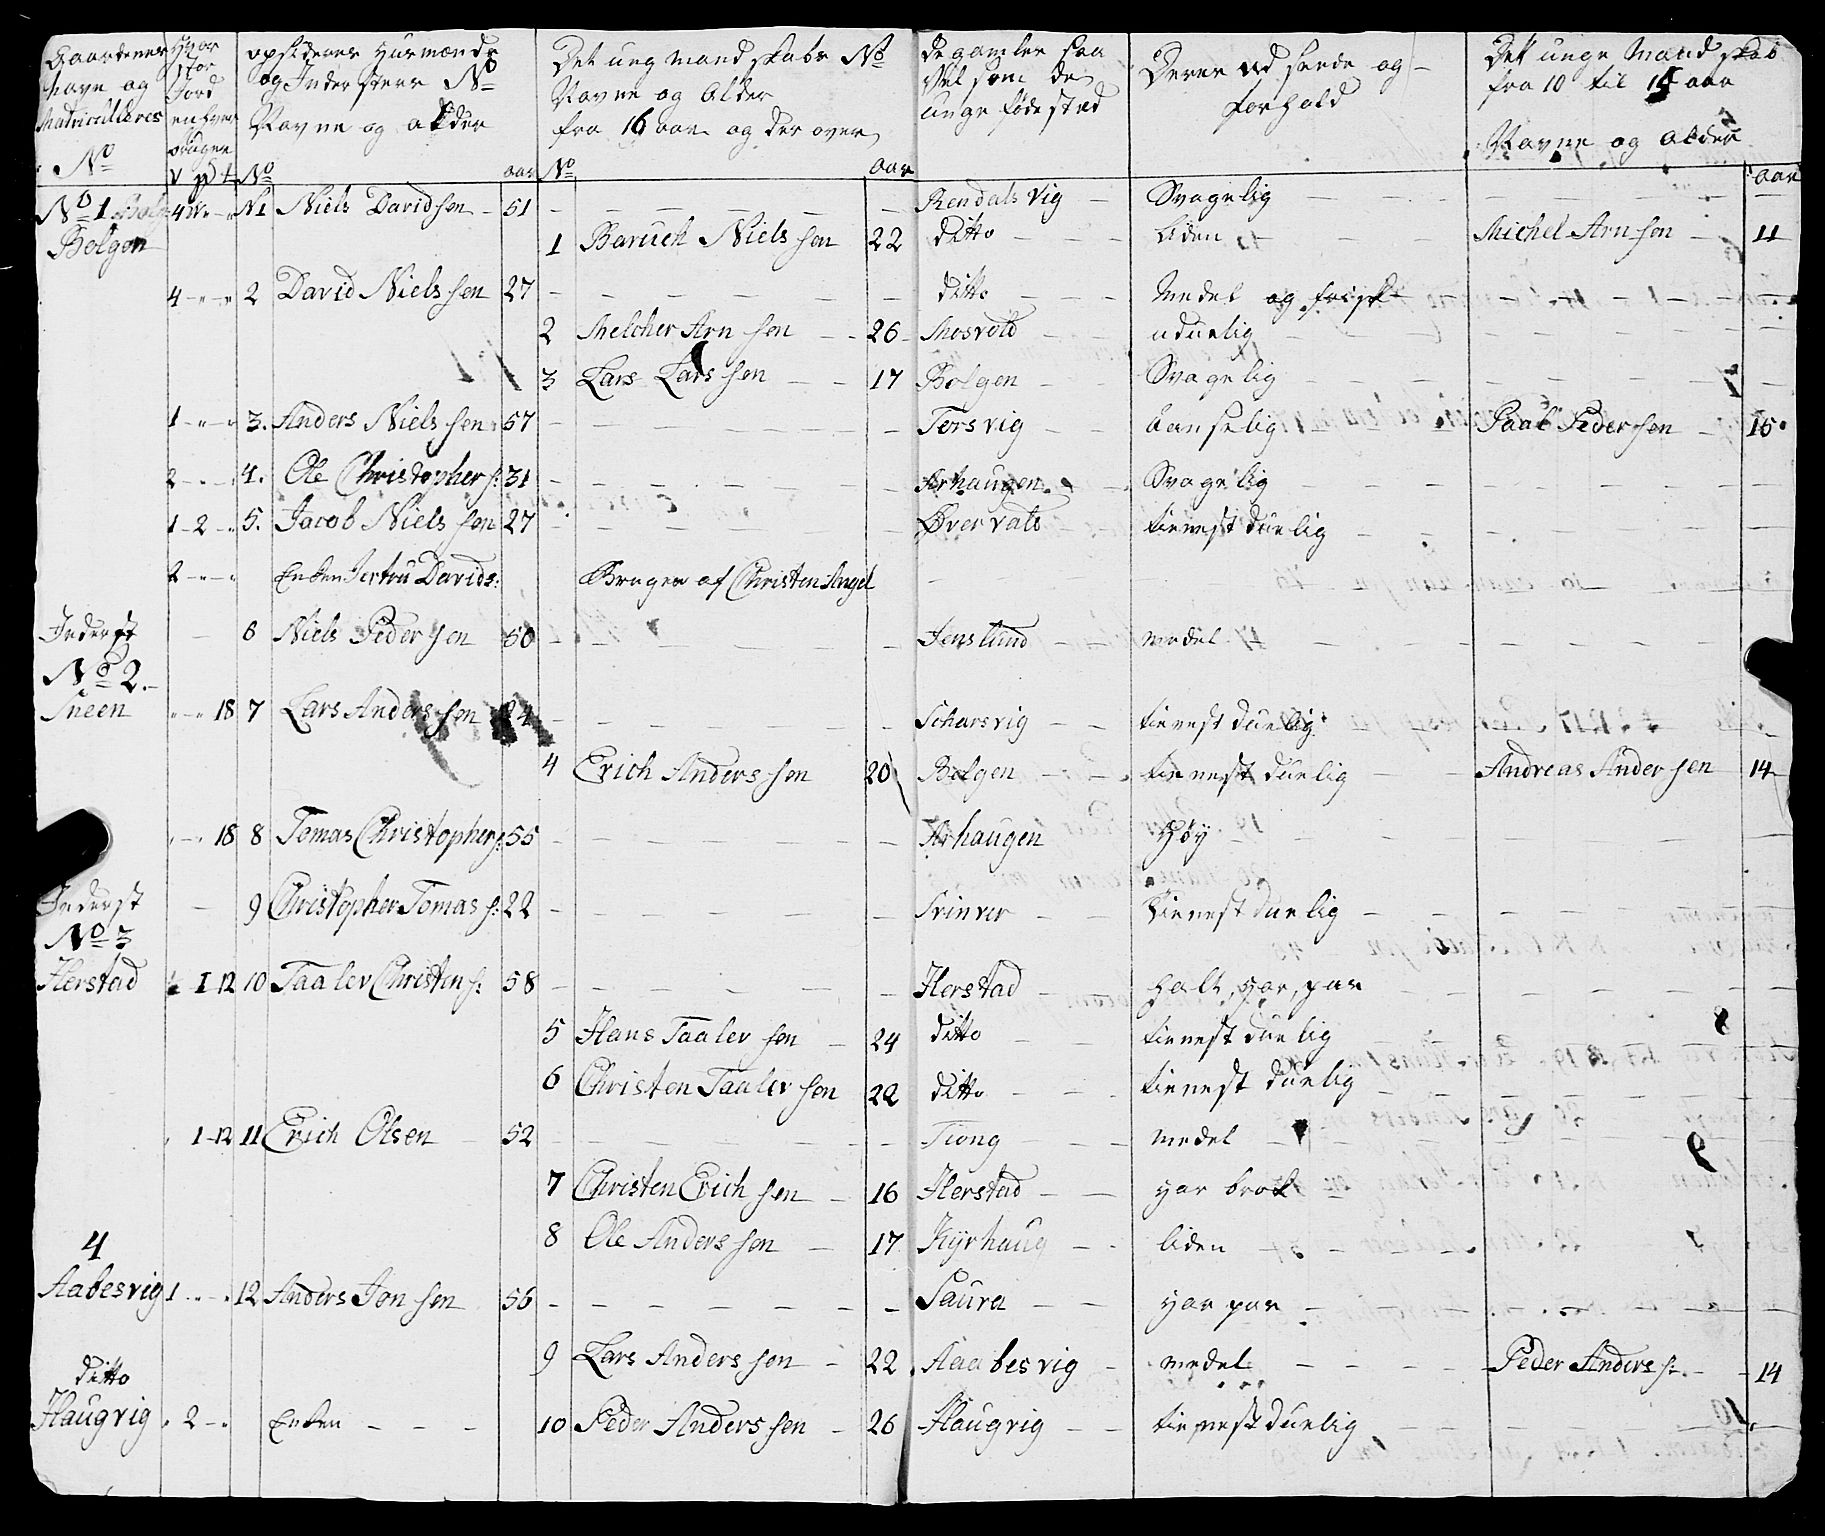 Gaardenes Navn og Matriculleres No
Hvor stor Jord en hver bruger
V pd
opsidernes Husmænds og Indersters No Navne og alder
No
aar
Det ung mandskabs No Navne og Alder fra 16 aar og der over
No
aar
De gamles saa vel som de unges fødested
Deres ud seende og forhold
Det unge Mand skab fra 10 til 15 aar Navne og alder
aar
No 1 4 N1 Niels Davidsen 51 Rendals Vig Svagelig
Bolgen 1 Baruch Nielssen 22 ditto liden Michel Arnsen 11
4 2 David Nielssen 27 ditto Medel og frisk
2 Melcher Arnsen 26 Mosvold uduelig
3 Lars Larssen 17 Bolgen Svagelig
1 3. Anders Nielssen 57 Torsvig Paal Pedersen 15
2 4. Ole Christophers: 31 Arhaugen Svagelig
1-2 5. Jacob Nielssen 27 Øvervats tienestduelig
2 Enken Jertru Davids: Bruges af Christen Angel
Inderst 6 Niels Pedersen 50 Jenslund medel
No 2.
Sneen 18 7 Lars Anderssen 24 Scharsvig tienestduelig
4 Erich Anderssen 20 Bolgen tienestduelig Andreas Andersen 14
18 8 Tomas Christophers: 55 Arhaugen Høy
Inderst 9 Christopher Tomass: 22 tienestduelig
No 3
Herstad 1 12 10 Taaler Christens: 58 Herstad halt, har, par
5 Hans Taalersen 24 ditto tienestduelig
6 Christen Taalersen 22 ditto tienestduelig
1-12 11 Erich Olsen 52 Tiong medel
7 Christen Erichsen 16 Herstad har brok
8 Ole Anderssen 17 Kyrhaug liden
4
Aabesvig 1 12 Anders Jonsen 56 Saura har par
9 Lars Anderssen 22 Aaabesvig medel Peder Anders: 14
ditto
Haugvig 2 Enken 10 Peder Anderssen 26 Haugvig tienestduelig